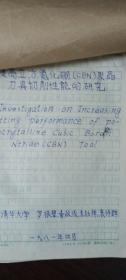 提高立方氮化硼(CBN)聚晶
刀具切削性能的研究
Investigation on Increasing
Cutting performance of po-
crystalline Cubic Boron
Nitride (CBN) Tool
清华大学
一九八一年四月